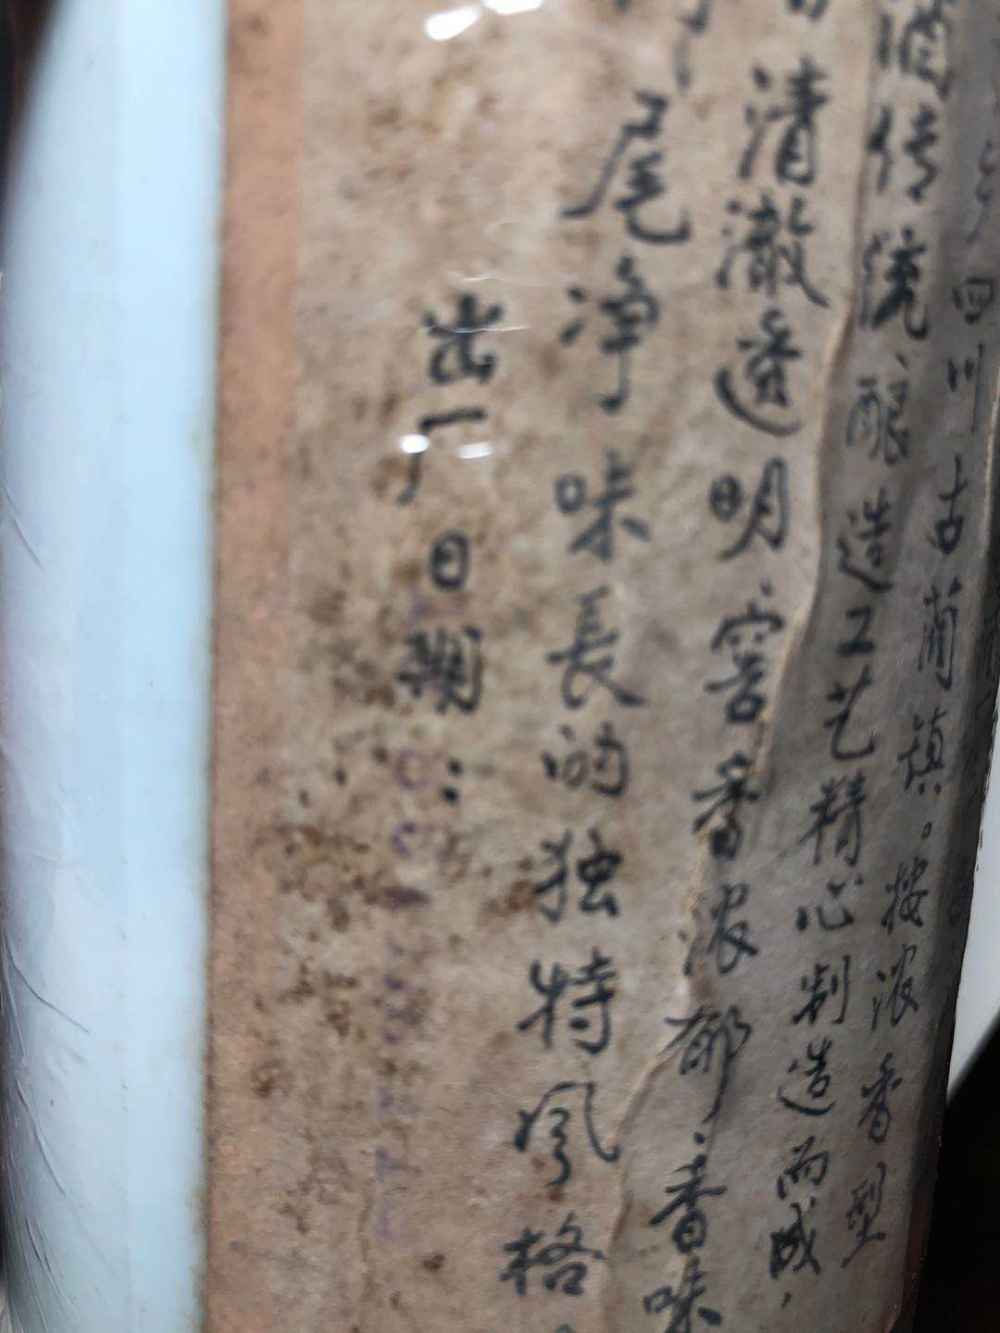 四川古蔺镇。按浓香型
酒传统酿造工艺精心制造而成，
清澈透明、窖香浓郁、香味
尾净味長的独特风格。
出厂日期：